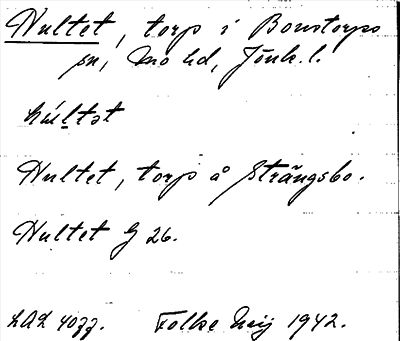 Hultet, torp i Bondstorps
sn, Mo hd, Jönk. l.
húltət
Hultet, torp å Strängsbo.
Hultet G 26.
LAL 4077. Folke Meij 1942.